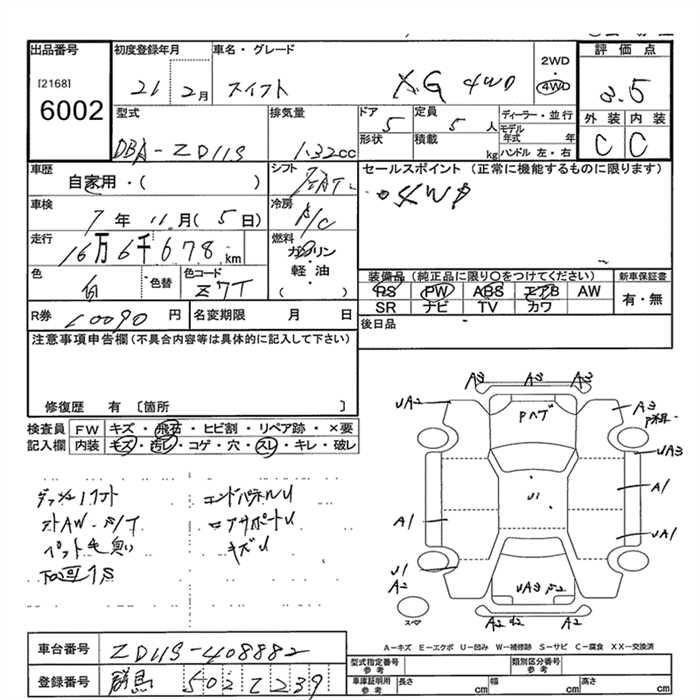 出品番号 初度登録年月 車名・グレード 2WD 評価点
[2168] 6002 21 2月 スイフト XG 4WD 4WD 3.5
型式 排気量 ドア 5 定員 5 人 ディーラー・並行 外装 内装
DBA-ZD11S 1.32cc 形状 積載 kg モデル年式 年 ハンドル 左・右 C C
車歴 自家用・( ) シフト セールスポイント (正常に機能するものに限ります)
車検 7年 11月(5日) 冷房 A/C 4WD
走行 16万6千678km 燃料 ガソリン
軽・油
( )
色 白 色替 色コード Z7T 装備品 (純正品に限り〇をつけてください) 新車保証書
PS PW ABS エアB AW 有・無
SR ナビ TV カワ
R券 円 名変期限 月 日 後日品
注意事項申告欄 (不具合内容等は具体的に記入して下さい)
修復歴 有 〔箇所 〕
検査員 FW キズ・飛石・ヒビ割・リペア跡・×要
記入欄 内装 キズ・汚レ・コゲ・穴・スレ・キレ・破レ
エンドパネルU
キズU
A3 A3 A3
UA2 A3
UA3
U1 A1
A1 UA1
U1
A2 UA3
スペア A2 A2
A-キズ E-エクボ U-凹み W-補修跡 S-サビ C-腐食 XX-交換済
車台番号 ZD11S-408882
登録番号 群馬 502 Z 239
型式指定番号 参考 類別区分番号 参考
車庫証明用 参考 長さ cm 幅 cm 高さ cm